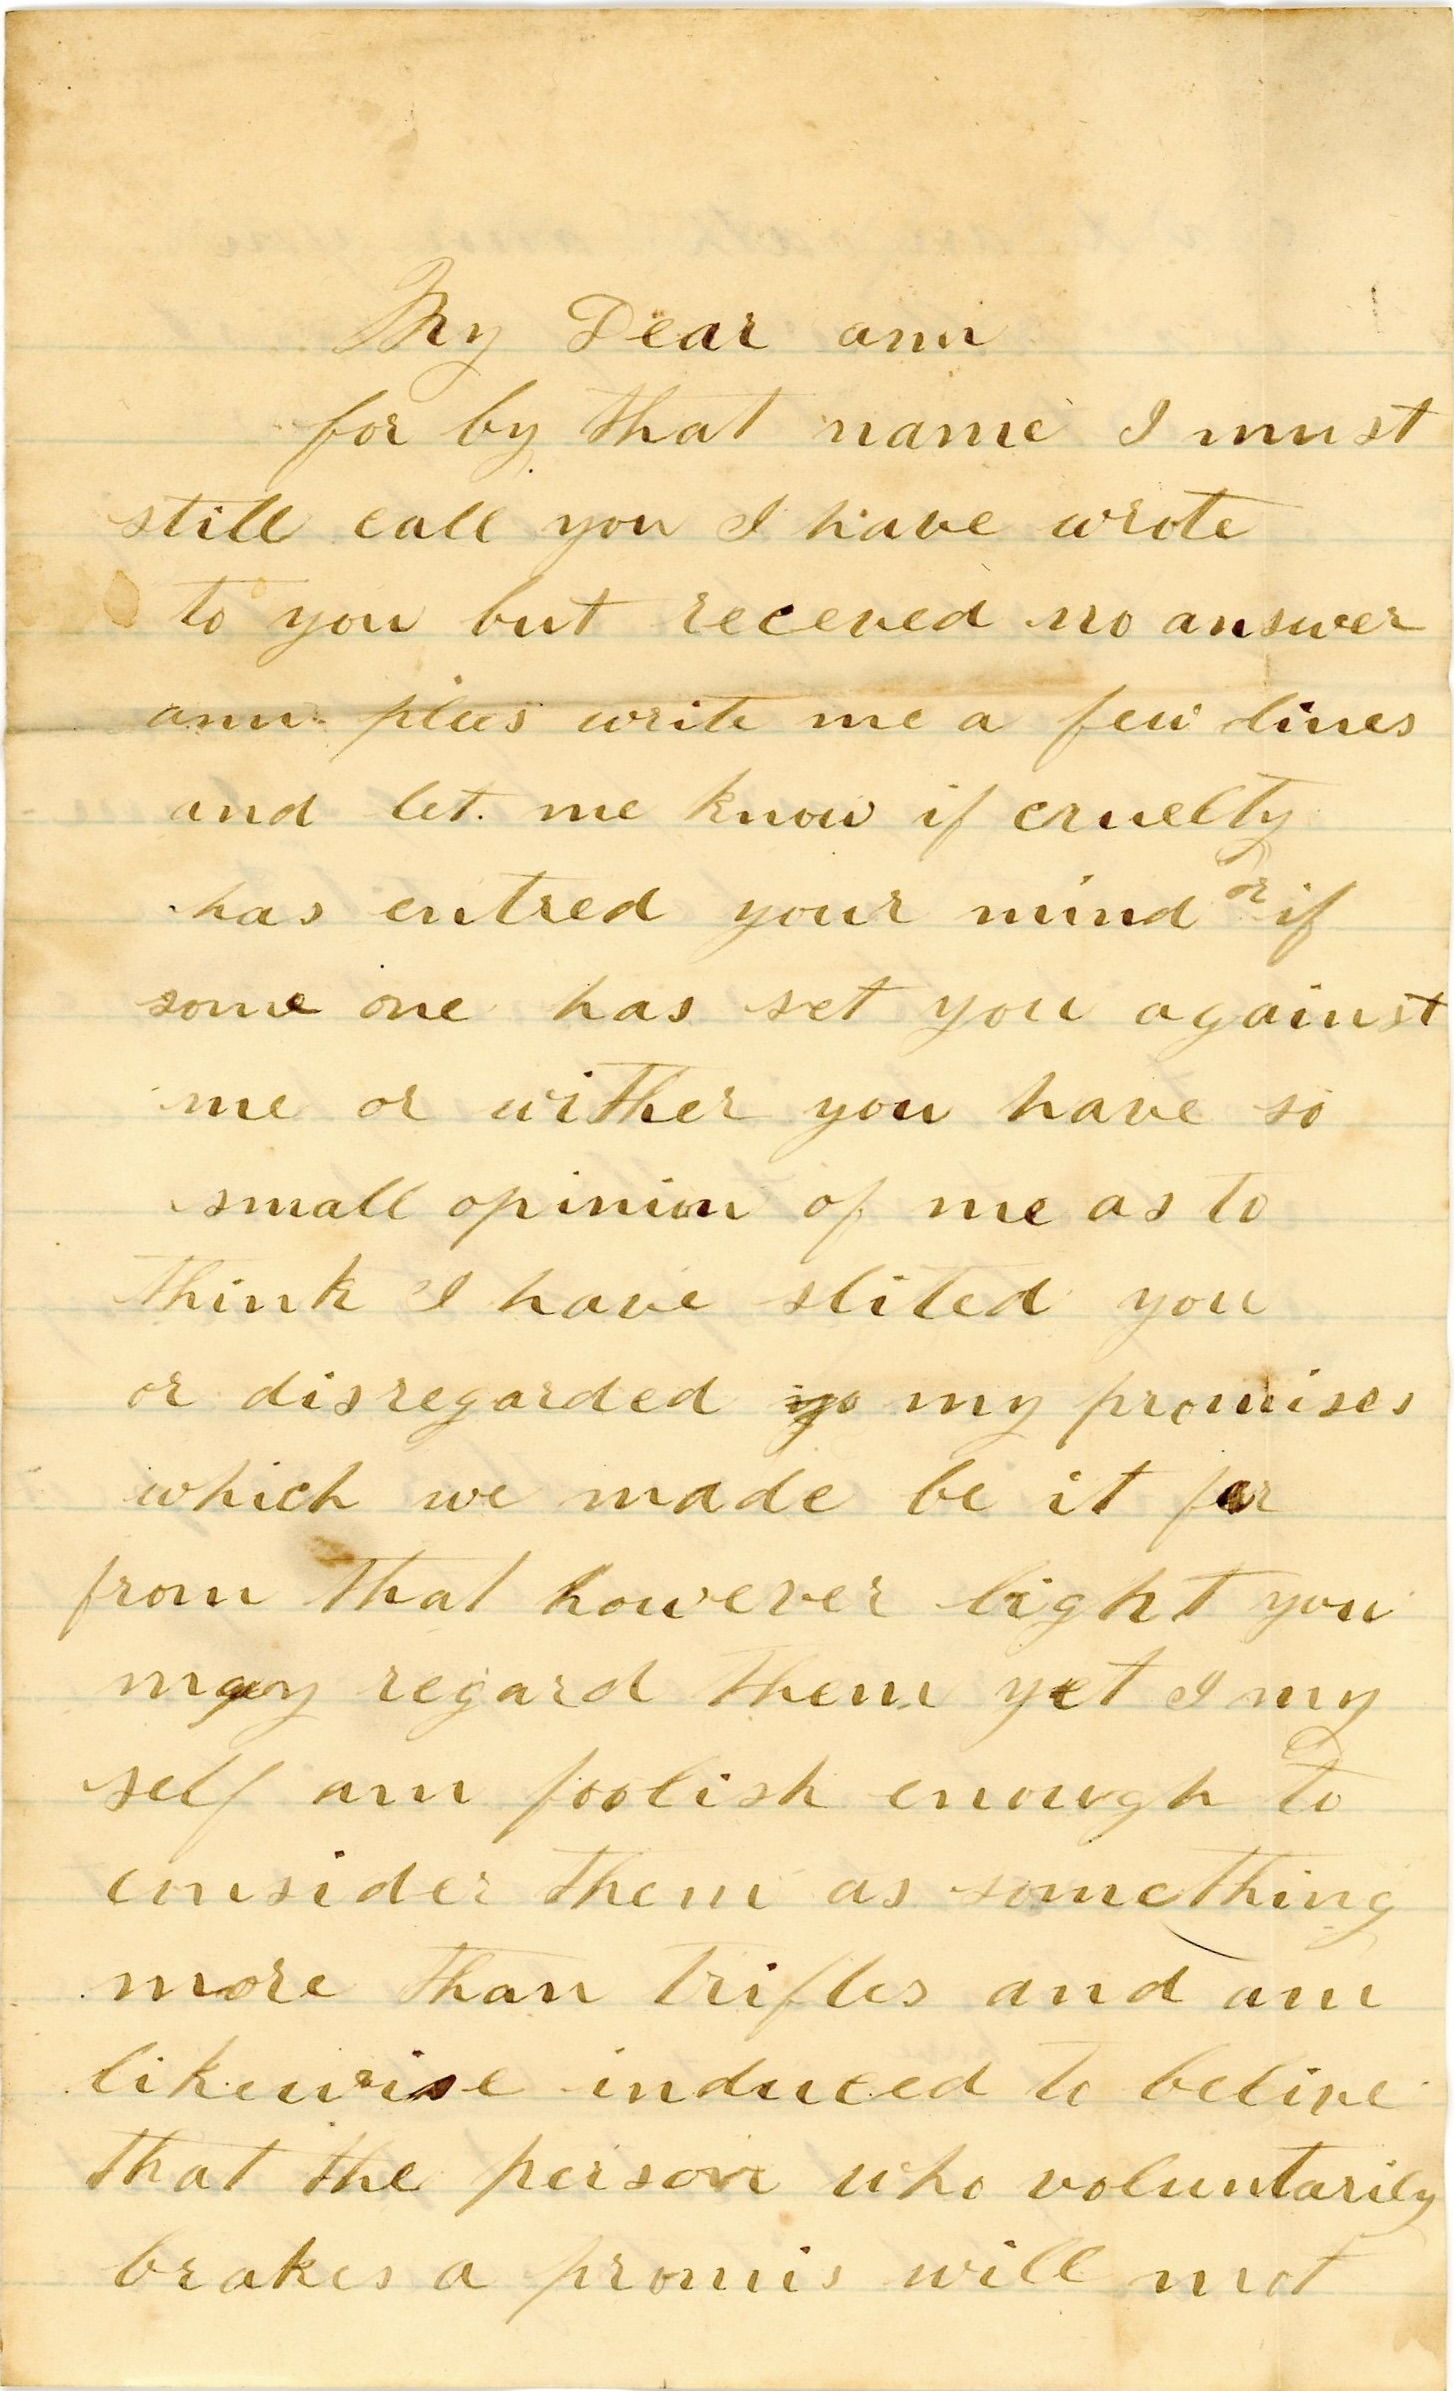 My Dear ann
for by that name I must
still call you I have wrote
to you but receved no answer
ann pleas write me a few lines
and let me know if cruelty
has entred your mind or if
some one has set you against
me or wither you have so
small opinion of me as to
think I have slited you
or disregarded yo my promises
which we made be it far
from that however light you
may regard them yet I my
self am foolish enough to
consider them as something
more than trifles and am
likewise induced to belive
that the person who voluntarily
brakes a promis will not